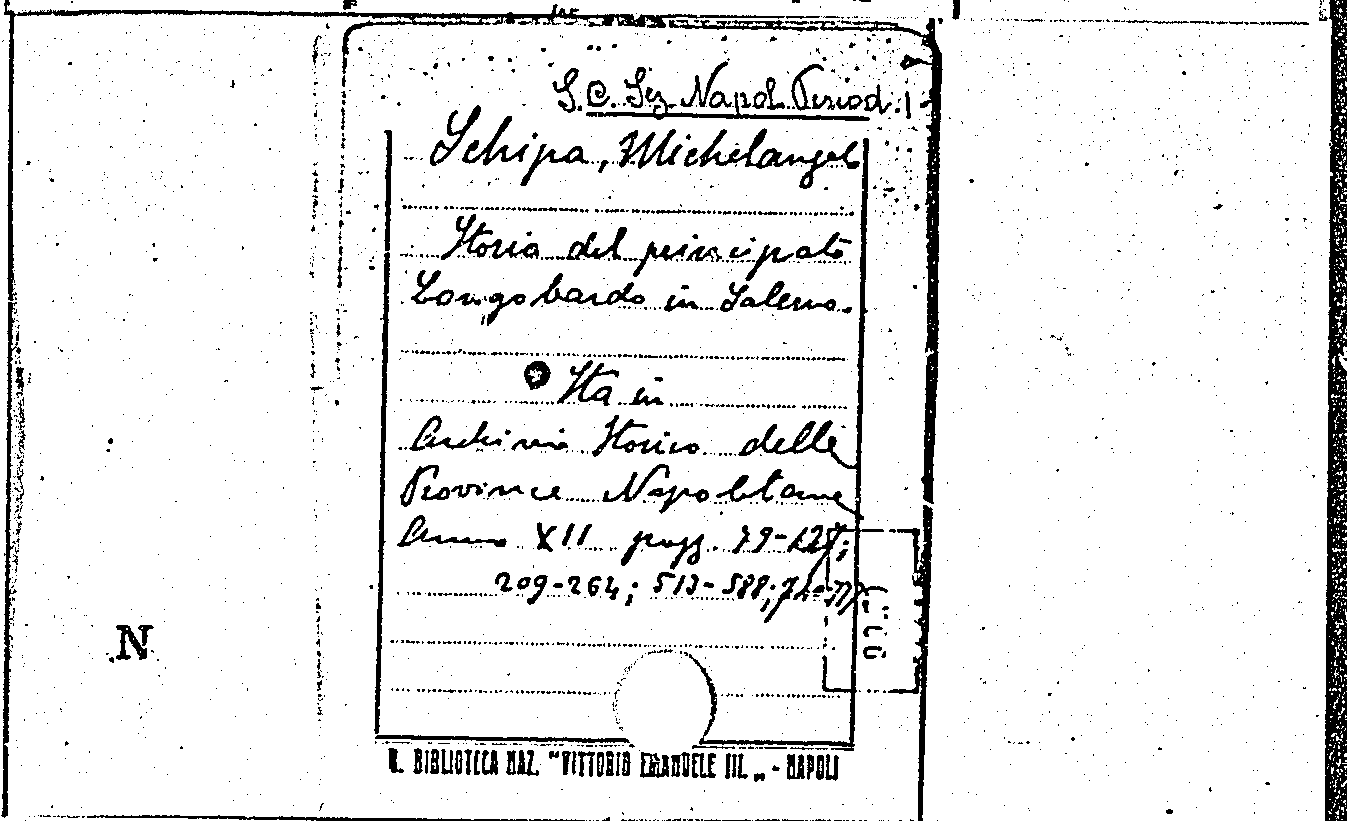 S.C. Sez. Napol. Period. 1
Schipa, Michelangelo
Storia del principato
Longobardo in Salerno.
Sta in
Archivio Storico delle
Province Napoletane
Anno XII pagg. 79-137;
209-264; 513-588;
N
R. BIBLIOTECA NAZ. "VITTORIO EMANUELE III. „ - NAPOLI